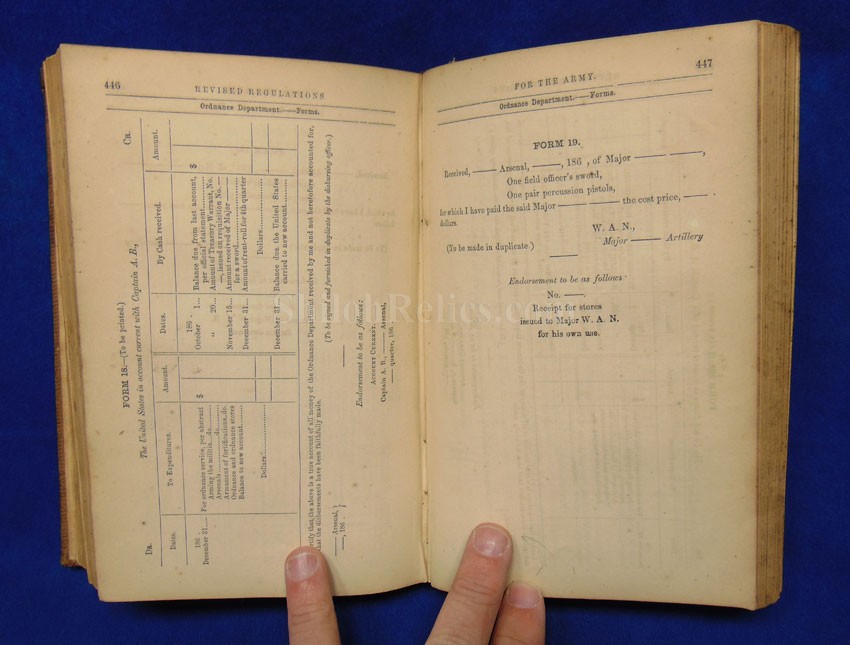 446
REVISED REGULATIONS
Ordnance Department.—Forms.
FORM 18.—(To be printed.)
The United States in account current with Captain A. B.,
DR.
CR.
Dates.
To Expenditures.
Amount.
Dates.
By Cash received.
Amount.
186 .
December 31....
For ordnance service, per abstract
Arming the militia....do..........
Arsenals......do..........
Armament of fortifications, do.
Ordnance and ordnance stores
Balance to new account.........
Dollars................
$
186 .
October 1...
" 20...
November 15...
December 31...
December 31...
Balance due from last account,
per official statement.........
Amount of Treasury Warrant, No.
—, issued on requisition No. —
Amount received of Major ——
for a sword..................
Amount of rent-roll for 4th quarter
Dollars................
Balance due the United States
carried to new account.........
$
tify that the above is a true account of all money of the Ordnance Department received by me and not heretofore accounted for,
that the disbursements have been faithfully made.
(To be signed and furnished in duplicate by the disbursing officer.)
— Arsenal, }
——, 186 . }
Endorsement to be as follows:
ACCOUNT CURRENT.
Captain A. B., —— Arsenal,
—— quarter, 186 .
447
FOR THE ARMY.
Ordnance Department.—Forms.
FORM 19.
Received, —— Arsenal, ——, 186 , of Major —— ——,
One field officer's sword,
One pair percussion pistols,
for which I have paid the said Major —— —— the cost price, ——
dollars.
W. A. N.,
(To be made in duplicate.)
Major —— Artillery
Endorsement to be as follows:
No. ——.
Receipt for stores
issued to Major W. A. N.
for his own use.
ShilohRelics.co